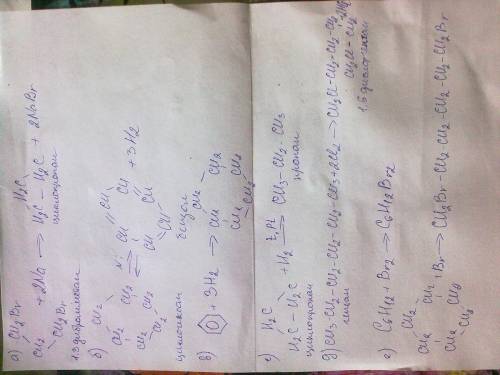 а) CH2Br H2C
CH2 + 2Na → H2C — H2C + 2NaBr
CH2Br циклопропан
1.3 дибромпропан
б) CH2 CH
CH2 CH2 Ni CH CH + 3H2
CH2 CH2 ⇌ CH CH
CH2 CH
циклогексан бензол
в) + 3H2 → CH2 CH2
CH2 CH2
CH2 CH2
г) H2C
H2C — H2C + H2 t, Pt → CH3 — CH2 — CH3
циклопропан пропан
д) CH3-CH2-CH2-CH2-CH2-CH3+2Cl2 → CH2Cl-CH2-CH2-CH2 -2HCl
гексан CH2Cl — CH2
1.6 дихлоргексан
е) C6H12 + Br2 → C6H12Br2
CH2
CH2 CH2 + Br → CH2Br-CH2-CH2-CH2-CH2-CH2Br
CH2 CH2
CH2